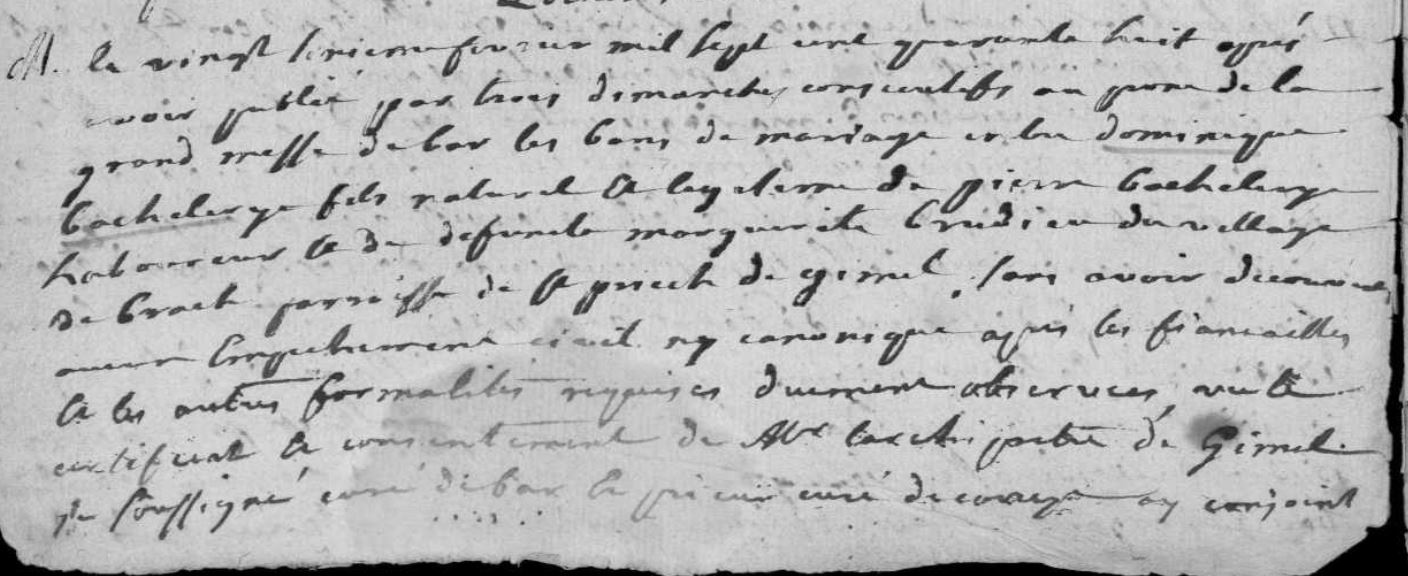 M. le vingt sixieme fevrier mil sept cent quarante huit apres
avoir publié par trois dimanches consecutifs au prone de la
grand messe de bar les bans de mariage entre dominique
bachelerye fils naturel & legitime de pierre bachelerye
laboureur & de defuncte marguerite brudieu du village
de brach parroisse de st priech de gimel, sans avoir decouvert
aucun empechement civil ny canonique apres les fiancailles
& les autres formalites requises duement observees, vu le
certificat & consentement de Mr larchipretre de Gimel
je soussigné curé de bar & prieur curé de correze ay conjoint